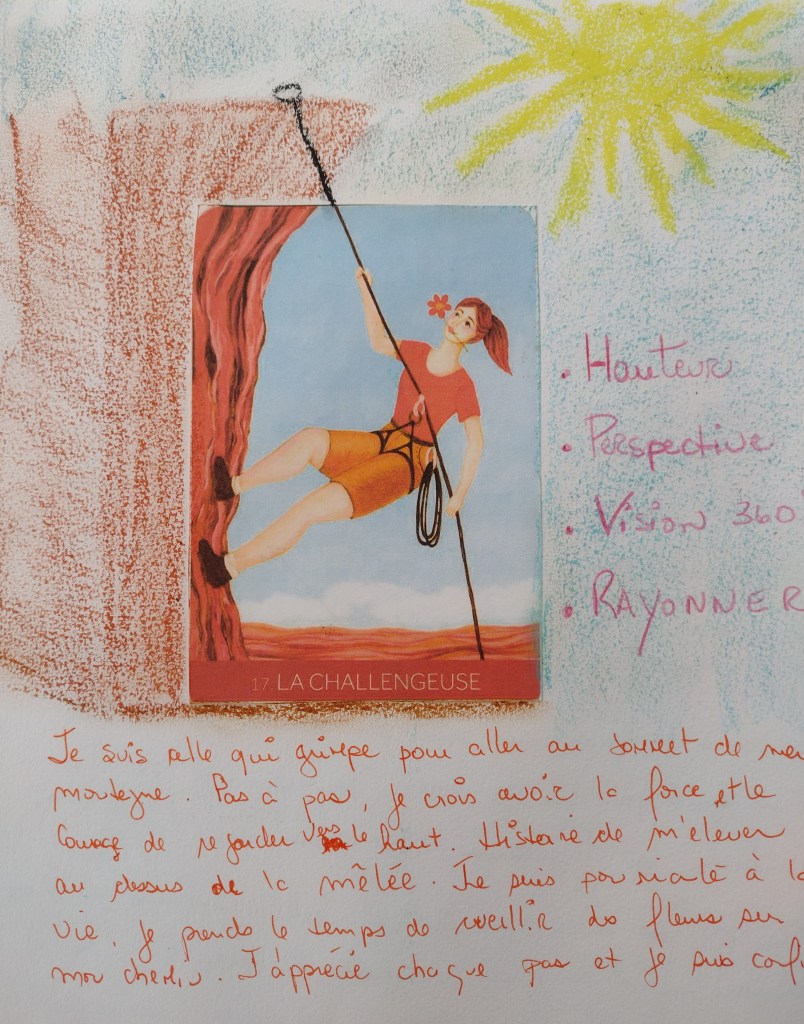 • Hauteur
• Perspective
• Vision 360
• RAYONNER
17. LA CHALLENGEUSE
Je suis celle qui grimpe pour aller au sommet de
montagne. Pas à pas, je crois avoir la force et le
courage de regarder vers le haut. Histoire de m'élever
au dessus de la mêlée. Je suis à
vie, je prends le temps de cueillir des fleurs sur
mon chemin. J'apprécie chaque pas et je suis